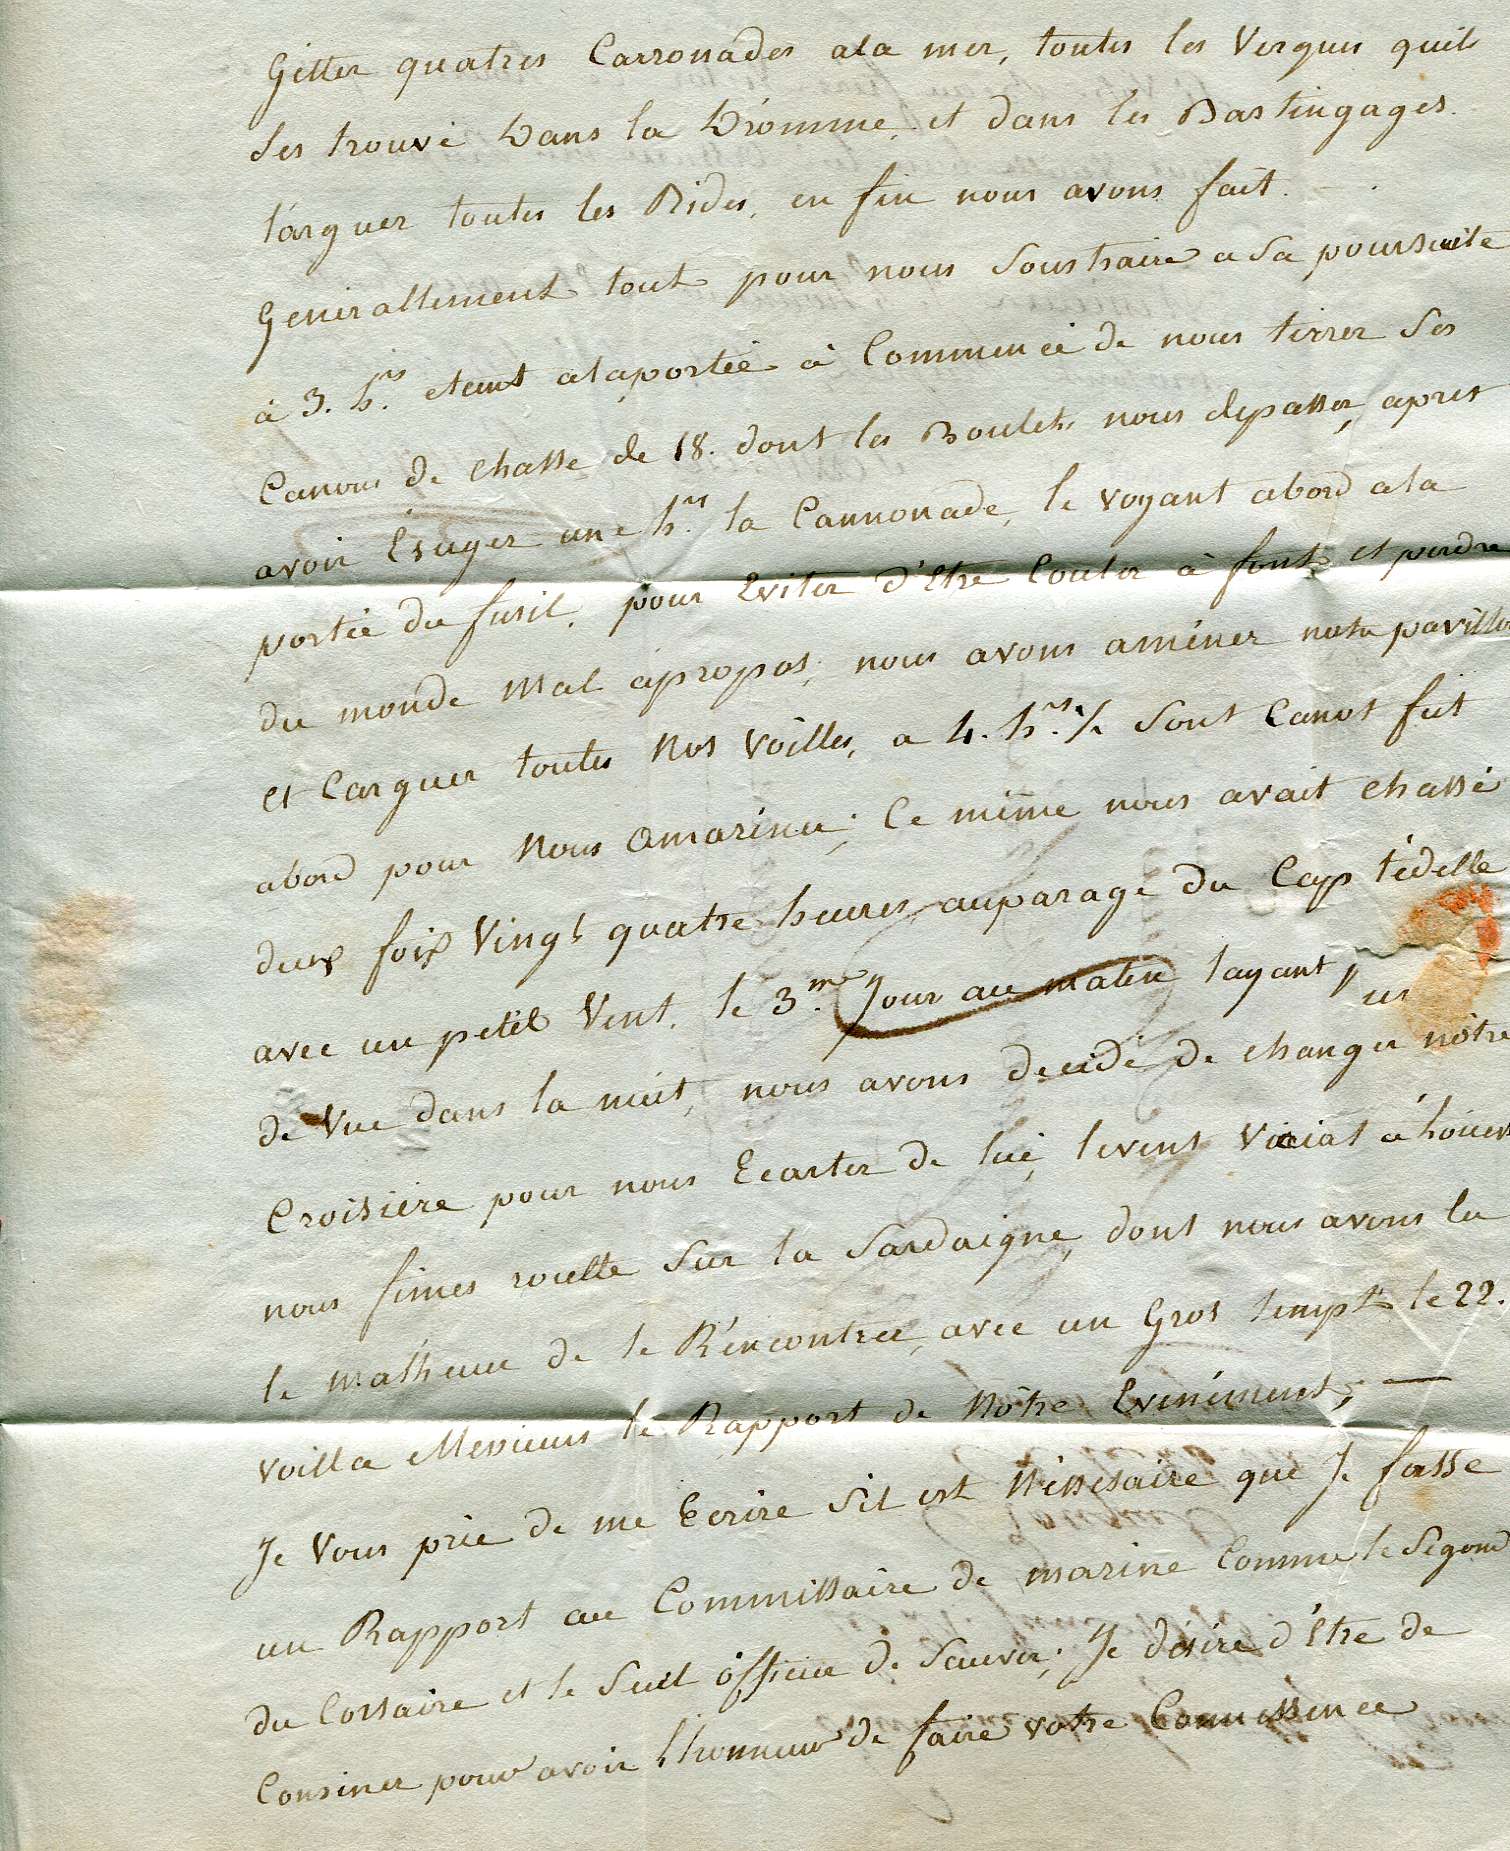 Getter quatres Carronades ala mer, toutes les Vergues quil
ses trouvé Dans la Drómme, et dans les Bastingages.
larguer toutes les Rides, en fin nous avons fait.
Generallement tout pour nous Soustraire a Sa poursuite
à 3. hrs. etant alaportée à Commencé de nous tirrer Ses
Canons de chasse de 18. dont les Boulets nous depasser, apres
avoir Esuyer une hrs. la Cannonade, le voyant abord ala
portée du fusil, pour Eviter d'Etre Couler à font et perdre
du monde Mal apropos, nous avons améner notre pavillon
et Carguer toutes Nos Voilles, a 4. hrs. ½ Sont Canot fut
abord pour Nous Amariner; Ce même nous avait chassé
deux foix Vingt quatre heures auparage du Cap tédelle
avec un petit Vent. le 3.me Jour au matin layant p
us
de Vue dans la nuit, nous avons decidé de changer nótre
Croisiere pour nous Ecarter de lui, levent Véciat à hóuest
nous fimes roulte Sur la Sardaigne, dont nous avons lu
le malheur de le Réncontrer, avec un Gros tempt le 22.
Voilla Messieurs le Rapport de Nótre Evenément, —
Je Vous prie de me Ecrire Sil est Néssesaire que Je fasse
un Rapport au Commissaire de marine Comme le Segond
du Corsaire et le Seul officier de Sauver; Je désire d'Etre de
Consiner pour avoir l'honneur de faire votre Connessence